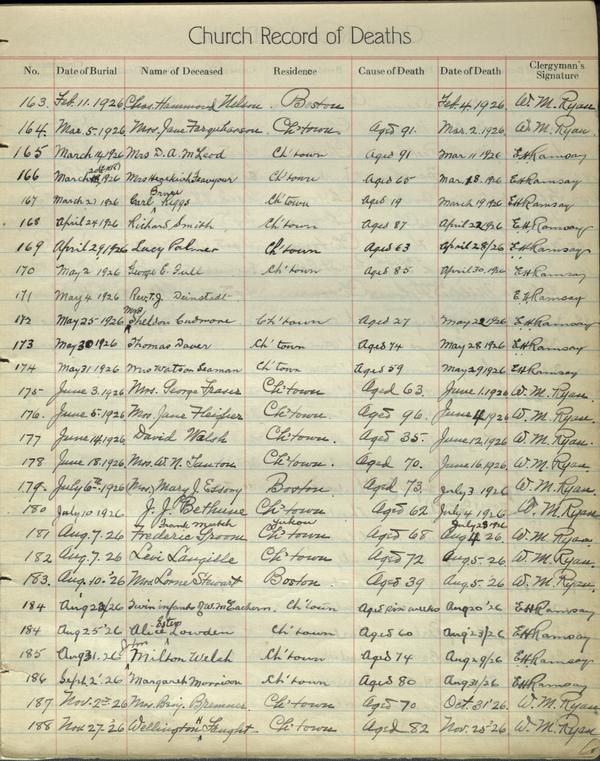 Church Record of Deaths
No. Date of Burial Name of Deceased Residence Cause of Death Date of Death Clergyman's Signature
163. Feb. 11. 1926 Chas. Hammond Nelson. Boston Feb. 4. 1926. W. M. Ryan.
164. Mar. 5. 1926 Mrs. Jane Farquharson Ch'town. Aged 91. Mar. 2. 1926. W. M. Ryan.
165 March 14, 1926 Mrs D. A. McLeod Ch'town Aged 91 Mar 11 1926 E H Ramsay
166 March 1926 Mrs Ch'town Aged 65 Mar. 18. 1926 E H Ramsay
Bruce
167 March 21 1926 Carl Riggs Ch'town Aged 19 March 19 1926 E H Ramsay
168 April 24 1926 Richard Smith Ch'town Aged 87 April 22 1926 E. H. Ramsay
169 April 29, 1926 Lucy Palmer Ch'town Aged 63 April 28/26 E. H. Ramsay
170 May 2 1926 George E. Full Ch'town Aged 85 April 30. 1926 E H Ramsay
171 May 4 1926 Rev. T. J. Deinstadt E H Ramsay
Mrs
172 May 25 1926 Sheldon Cudmore Ch'town Aged 27 May 22 1926 E H Ramsay
173 May 30 1926 Thomas Ch'town Aged 74 May 28 1926 E H Ramsay
174 May 31 1926 Mrs Watson Seaman Ch'town Aged 59 May 29 1926 E H Ramsay
175- June 3. 1926 Mrs. George Fraser Ch'town Aged 63. June 1. 1926 W. M. Ryan.
176. June 5. 1926 Mrs. Jane Ch'town Aged 96. June 4 1926 W. M. Ryan.
177 June 14. 1926 David Walsh Ch'town. Aged 35. June 12. 1926 W. M. Ryan.
178 June 18. 1926 Mrs. W. N. Tanton Ch'town. Aged 70. June 16. 1926. W. M. Ryan.
179. July 6th 1926 Mrs. Mary J. Boston Aged 73. July 3 1926 W. M. Ryan.
180 July 10 1926 J. J. Bethune Ch'town Aged 62 July 4 1926 W. M. Ryan
Frank Mutch Yukon July 23 1926
181 Aug. 7. 26 Frederic Ch'town Aged 68 Aug 4 26 W. M. Ryan.
182 Aug. 7. 26 Levi Ch'town Aged 72 Aug. 5. 26 W. M. Ryan.
183. Aug. 10. '26 Mrs. Lorne Stewart Boston Aged 39 Aug. 5. '26 W. M. Ryan.
184 Aug 23/26 Twin infants of W. McEachern. Ch'town Aged six weeks Aug 20 '26 E H Ramsay
Estep
184 Aug 25 '26 Alice Lowden Ch'town Aged 60 Aug 23/26 E H Ramsay
John
185 Aug 31. 26 Milton Welsh Ch'town Aged 74 Aug 29/26 E H Ramsay
186 Sept 2. '26 Margaret Morrison Ch'town Aged 80 Aug 31/26 E H Ramsay
187 Nov. 2nd. 26 Mrs. Benj. Bremner. Ch'town Aged 70 Oct. 31. 26. W. M. Ryan
H
188 Nov 27. '26 Wellington Ch'town Aged 82 Nov. 25. 26 W. M. Ryan